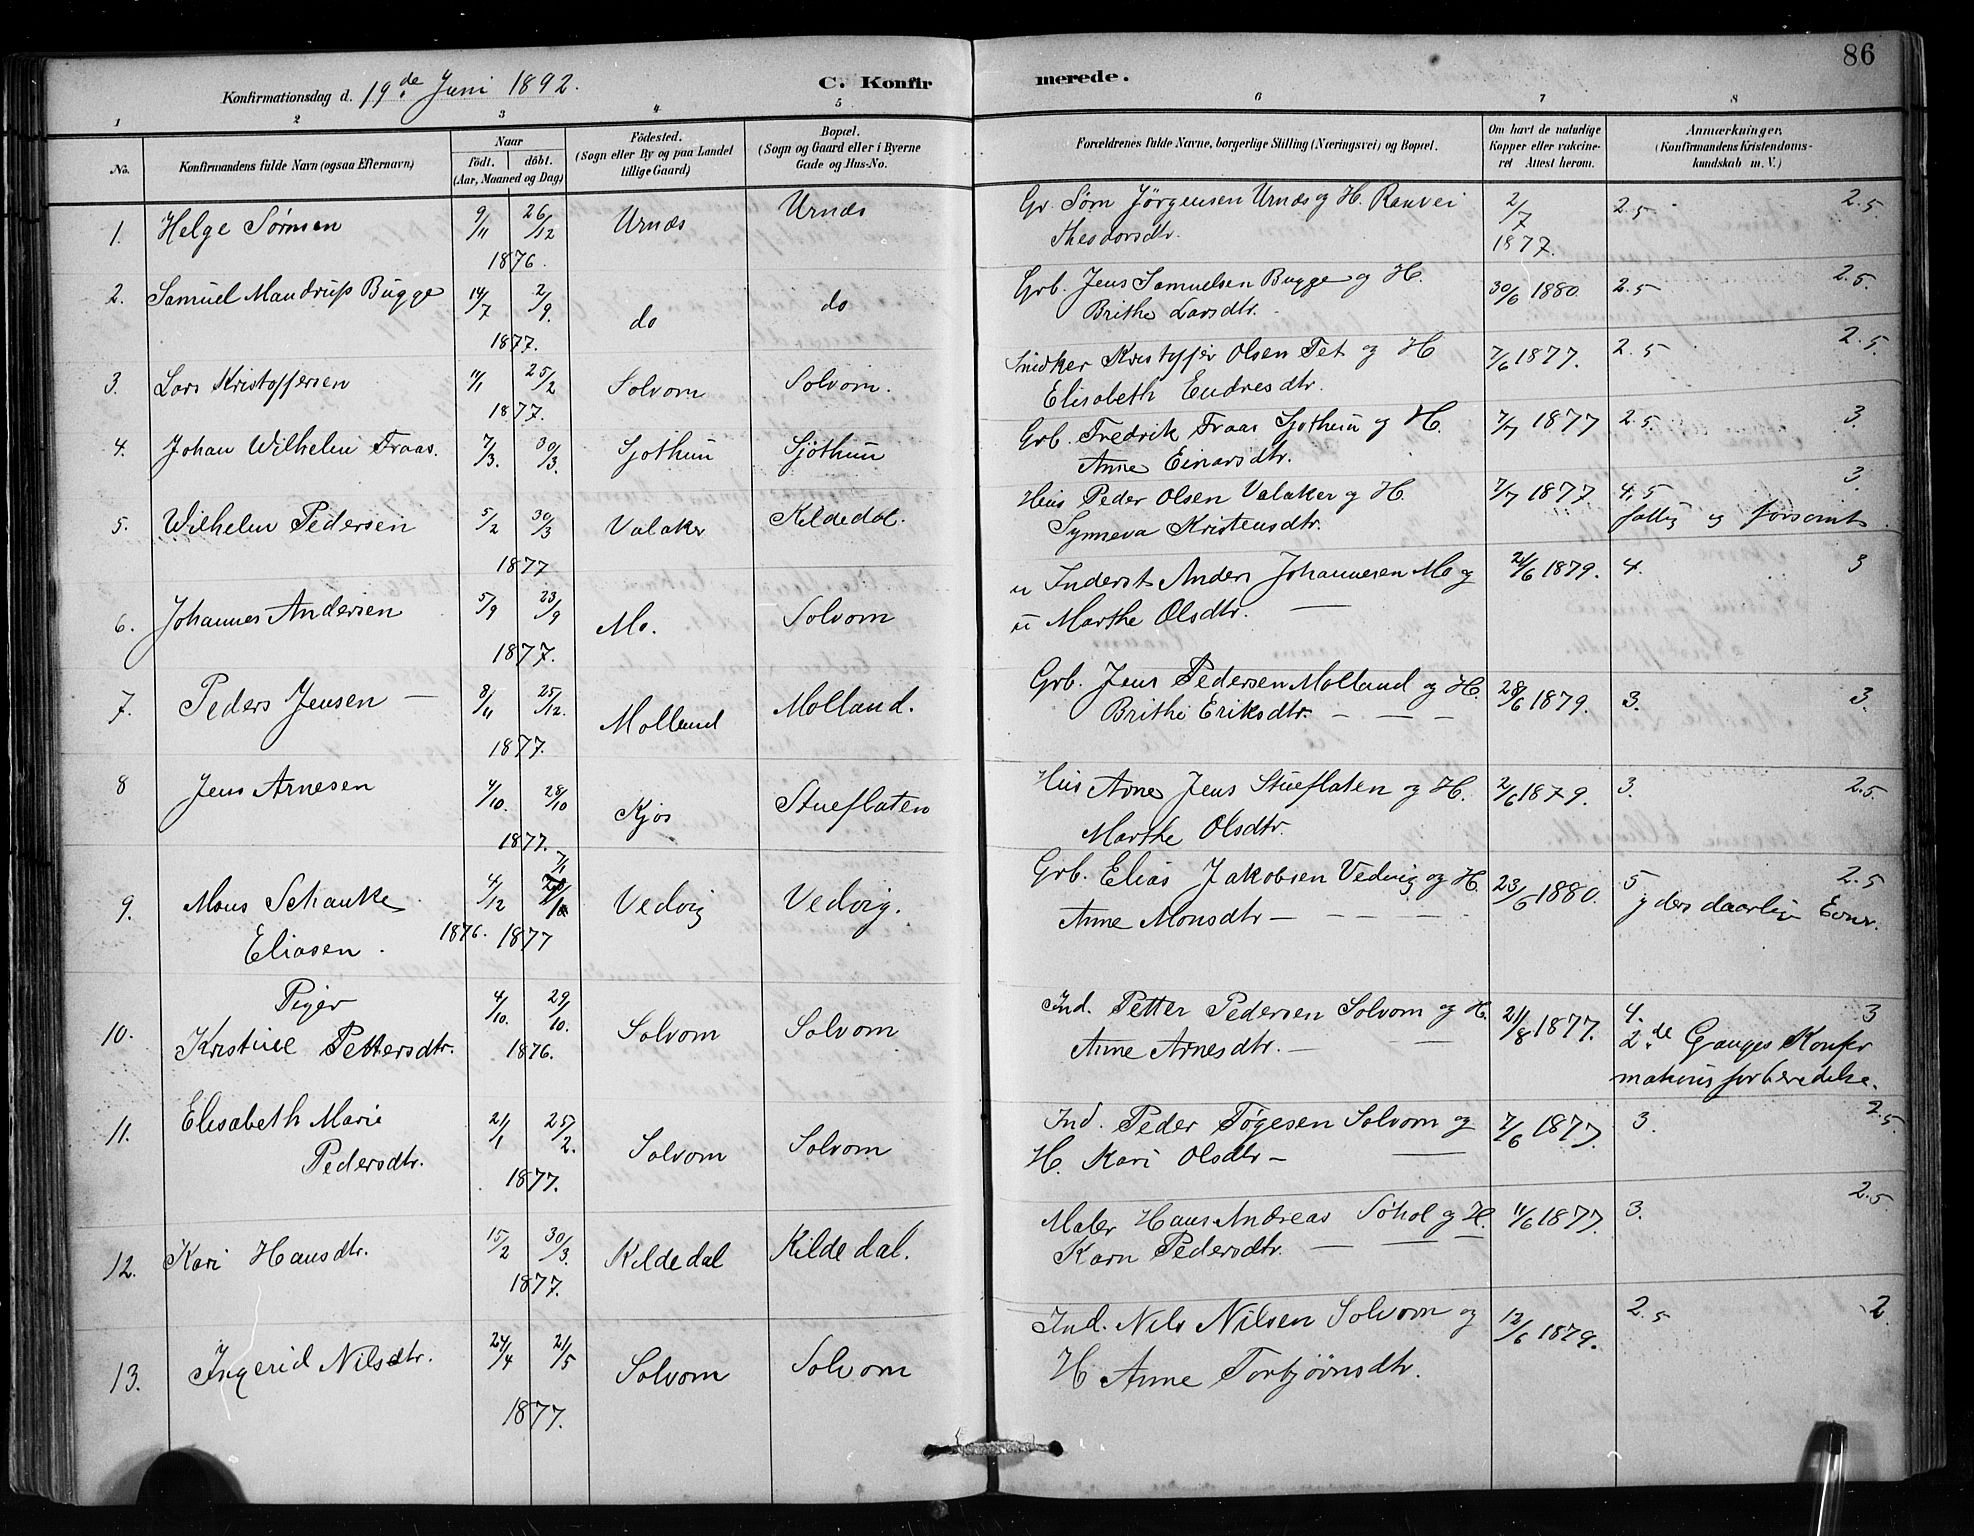 86
Konfirmationsdag d. 19de Juni 1892. C. Konfir merede.
1 2 3 4 5 6 7 8
No. Konfirmandens fulde Navn (ogsaa Efternavn) Naar födt. döbt. (Aar, Maaned og Dag) Födested. (Sogn eller By og paa Landet tillige Gaard) Bopæl. (Sogn og Gaard eller i Byerne Gade og Hus-No. Forældrenes fulde Navne, borgerlige Stilling (Næringsvei) og Bopæl. Om havt de naturlige Kopper eller vakcineret Attest herom. Anmærkninger, (Konfirmandens Kristendomskundskab m. V.)
1. Helge Sørnsen 9/11 26/12 Urnæs Urnæs Gr. Sørn Jörgensen Urnæs og H. Ranvei 2/7 2.5 2.5
1876. Theodorsdtr. 1877.
2. Samuel Mandrup Bugge 14/7 2/9 do do Grb. Jens Samuelsen Bugge og H. 30/6 1880. 2.5 2.5.
1877. Brithe Larsdtr.
3. Lars Kristoffersen 11/1 25/2 Solvorn Solvorn. Snedker Kristoffer Olsen Tet og H 7/6 1877. 2.5 2.5.
1877. Elisabeth Endresdtr.
4. Johan Wilhelm Fraas. 7/3. 30/3. Sjøthun Sjöthun Grb. Fredrik Fraas Sjøthun og H. 7/7 1877 2.5. 3.
Anne Einarsdtr.
5. Wilhelm Pedersen 5/2 30/3 Valaker Kildedal. Hus Peder Olsen Valaker og H 7/7 1877 4,5 3.
1877 Synneva Kristensdtr. fattig og forsømt
6. Johannes Andersen 5/9 23/9 Mo. Solvorn u Inderst Anders Johannesen Mo og 24/6 1879. 4. 3
1877. u Marthe Olsdtr. —
7. Peders Jensen — 8/11 25/12. Molland Molland. Grb. Jens Pedersen Molland og H. 28/6 1879. 3. 3.
1877. Brithe Eriksdtr. — — —
8 Jens Arnesen 4/10. 28/10 Kjos Stueflaten Hus Arne Jens Stueflaten og H. 2/6 1879. 3. 2.5.
1877. Marthe Olsdtr.
9. Mons Schanke 4/12 7/1 Vedvig Vedvig. Grb. Elias Jakobsen Vedvig og H. 23/6 1880. 5 2.5
Eliasen. 1876. 1877 Anne Monsdtr — — — — yders daarlige Evner.
Piger
10. Kristine Pettersdtr. 4/10. 29/10. Solvorn Solvorn Ind. Petter Pedersen Solvorn og H. 21/8 1877. 4. 3
1876. Anne Arnesdtr. — — 2de Ganges Konfirmationsforberedelse.
11. Elisabeth Marie 21/1 25/2. Solvorn Solvorn Ind. Peder Tøgesen Solvorn og 7/6 1877. 3. 2.5
Pedersdtr. 1877. H. Kari Olsdtr — —
12. Kari Hansdtr. 15/2 30/3. Kildedal Kildedal. Maler Hans Andreas Søhol og H. 11/6 1877. 3. 2.5
1877. Karn Pedersdtr. — — —
13. Ingerid Nilsdtr. 24/4 21/5 Solvorn Solvorn Ind. Nils Nilsen Solvorn og 12/6 1879. 2.5 2
1877. H Anne Torbjørnsdtr.